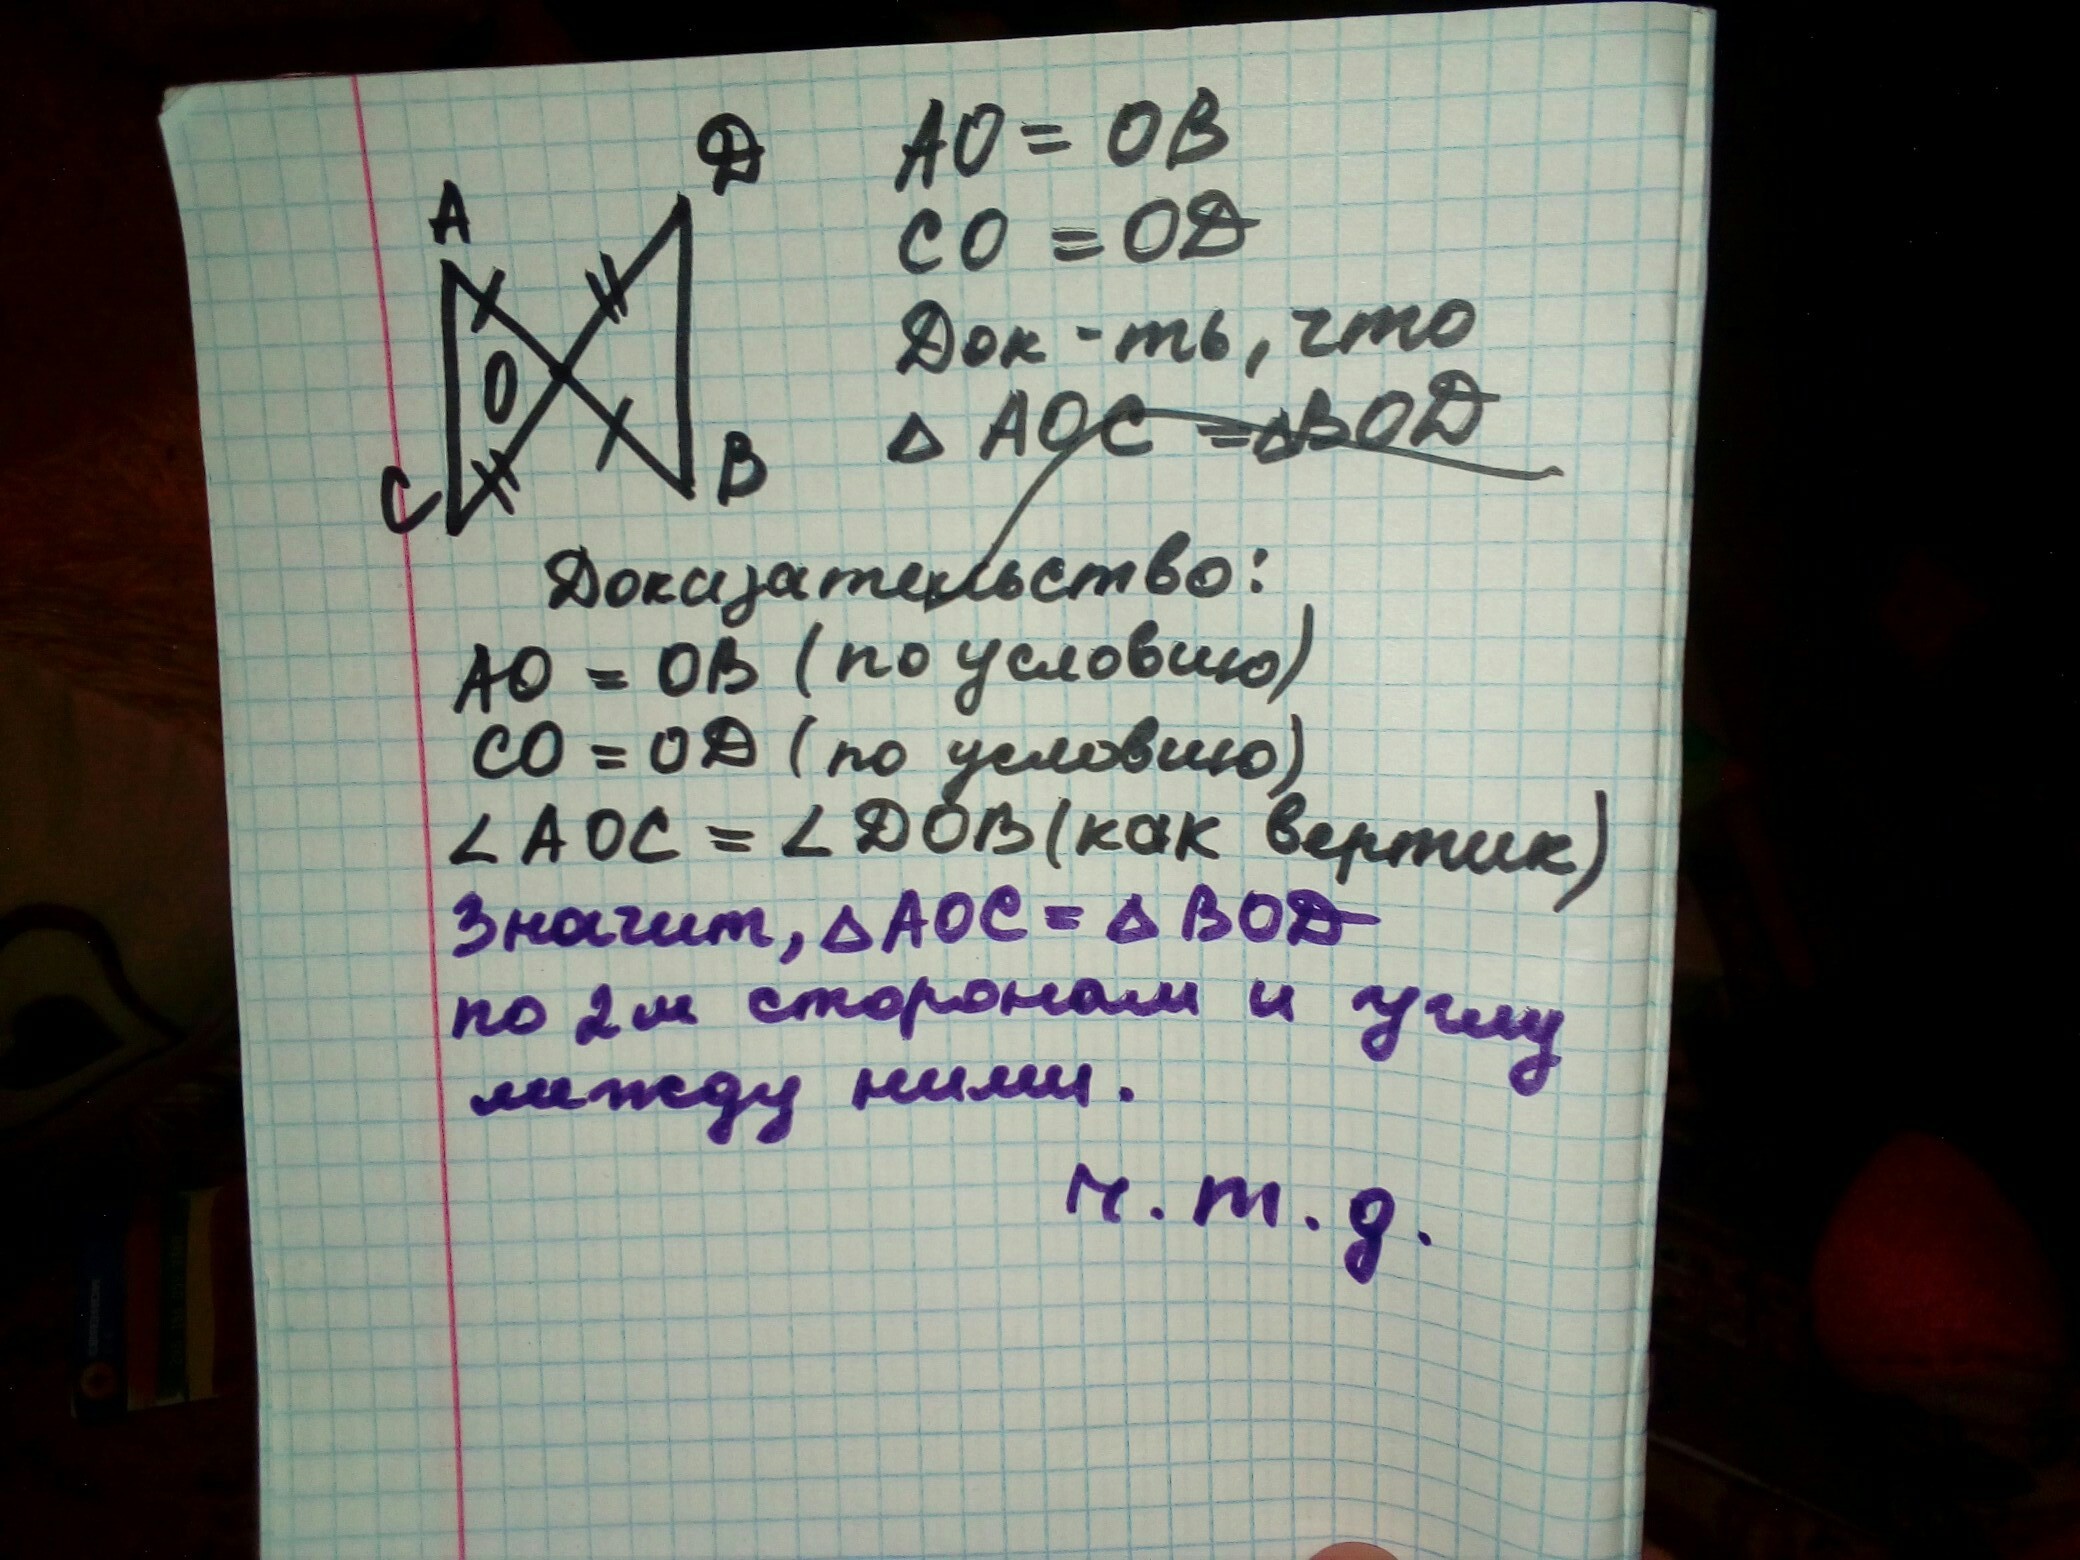 A
D
O
C
B
AO = OB
CO = OD
Док-ть, что
△ AOC = △BOD
Доказательство:
AO = OB (по условию)
CO = OD (по условию)
∠AOC = ∠DOB (как вертик)
Значит, △AOC = △BOD
по 2м сторонам и углу
между ними.
ч.т.д.